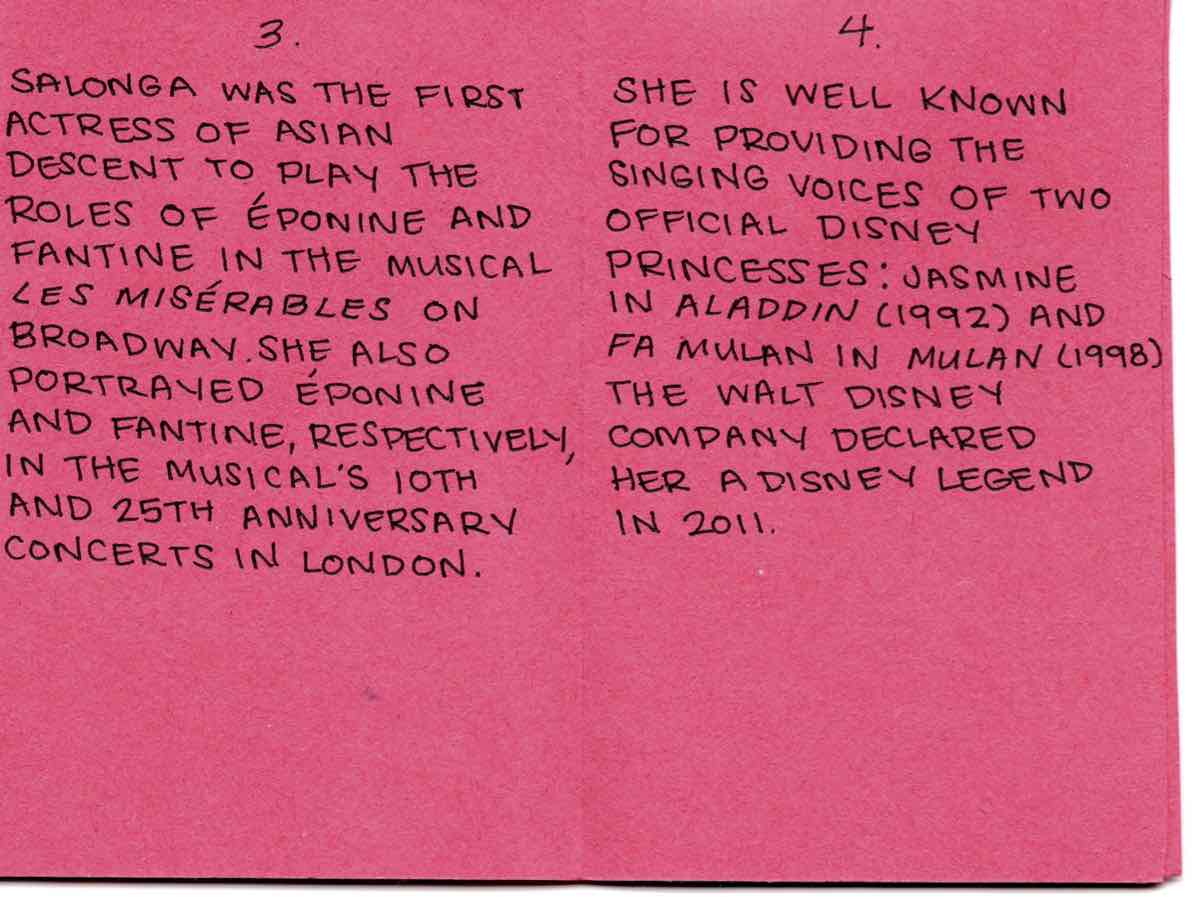 3.
SALONGA WAS THE FIRST
ACTRESS OF ASIAN
DESCENT TO PLAY THE
ROLES OF ÉPONINE AND
FANTINE IN THE MUSICAL
LES MISÉRABLES ON
BROADWAY. SHE ALSO
PORTRAYED ÉPONINE
AND FANTINE, RESPECTIVELY,
IN THE MUSICAL'S 10TH
AND 25TH ANNIVERSARY
CONCERTS IN LONDON.
4.
SHE IS WELL KNOWN
FOR PROVIDING THE
SINGING VOICES OF TWO
OFFICIAL DISNEY
PRINCESSES: JASMINE
IN ALADDIN (1992) AND
FA MULAN IN MULAN (1998)
THE WALT DISNEY
COMPANY DECLARED
HER A DISNEY LEGEND
IN 2011.